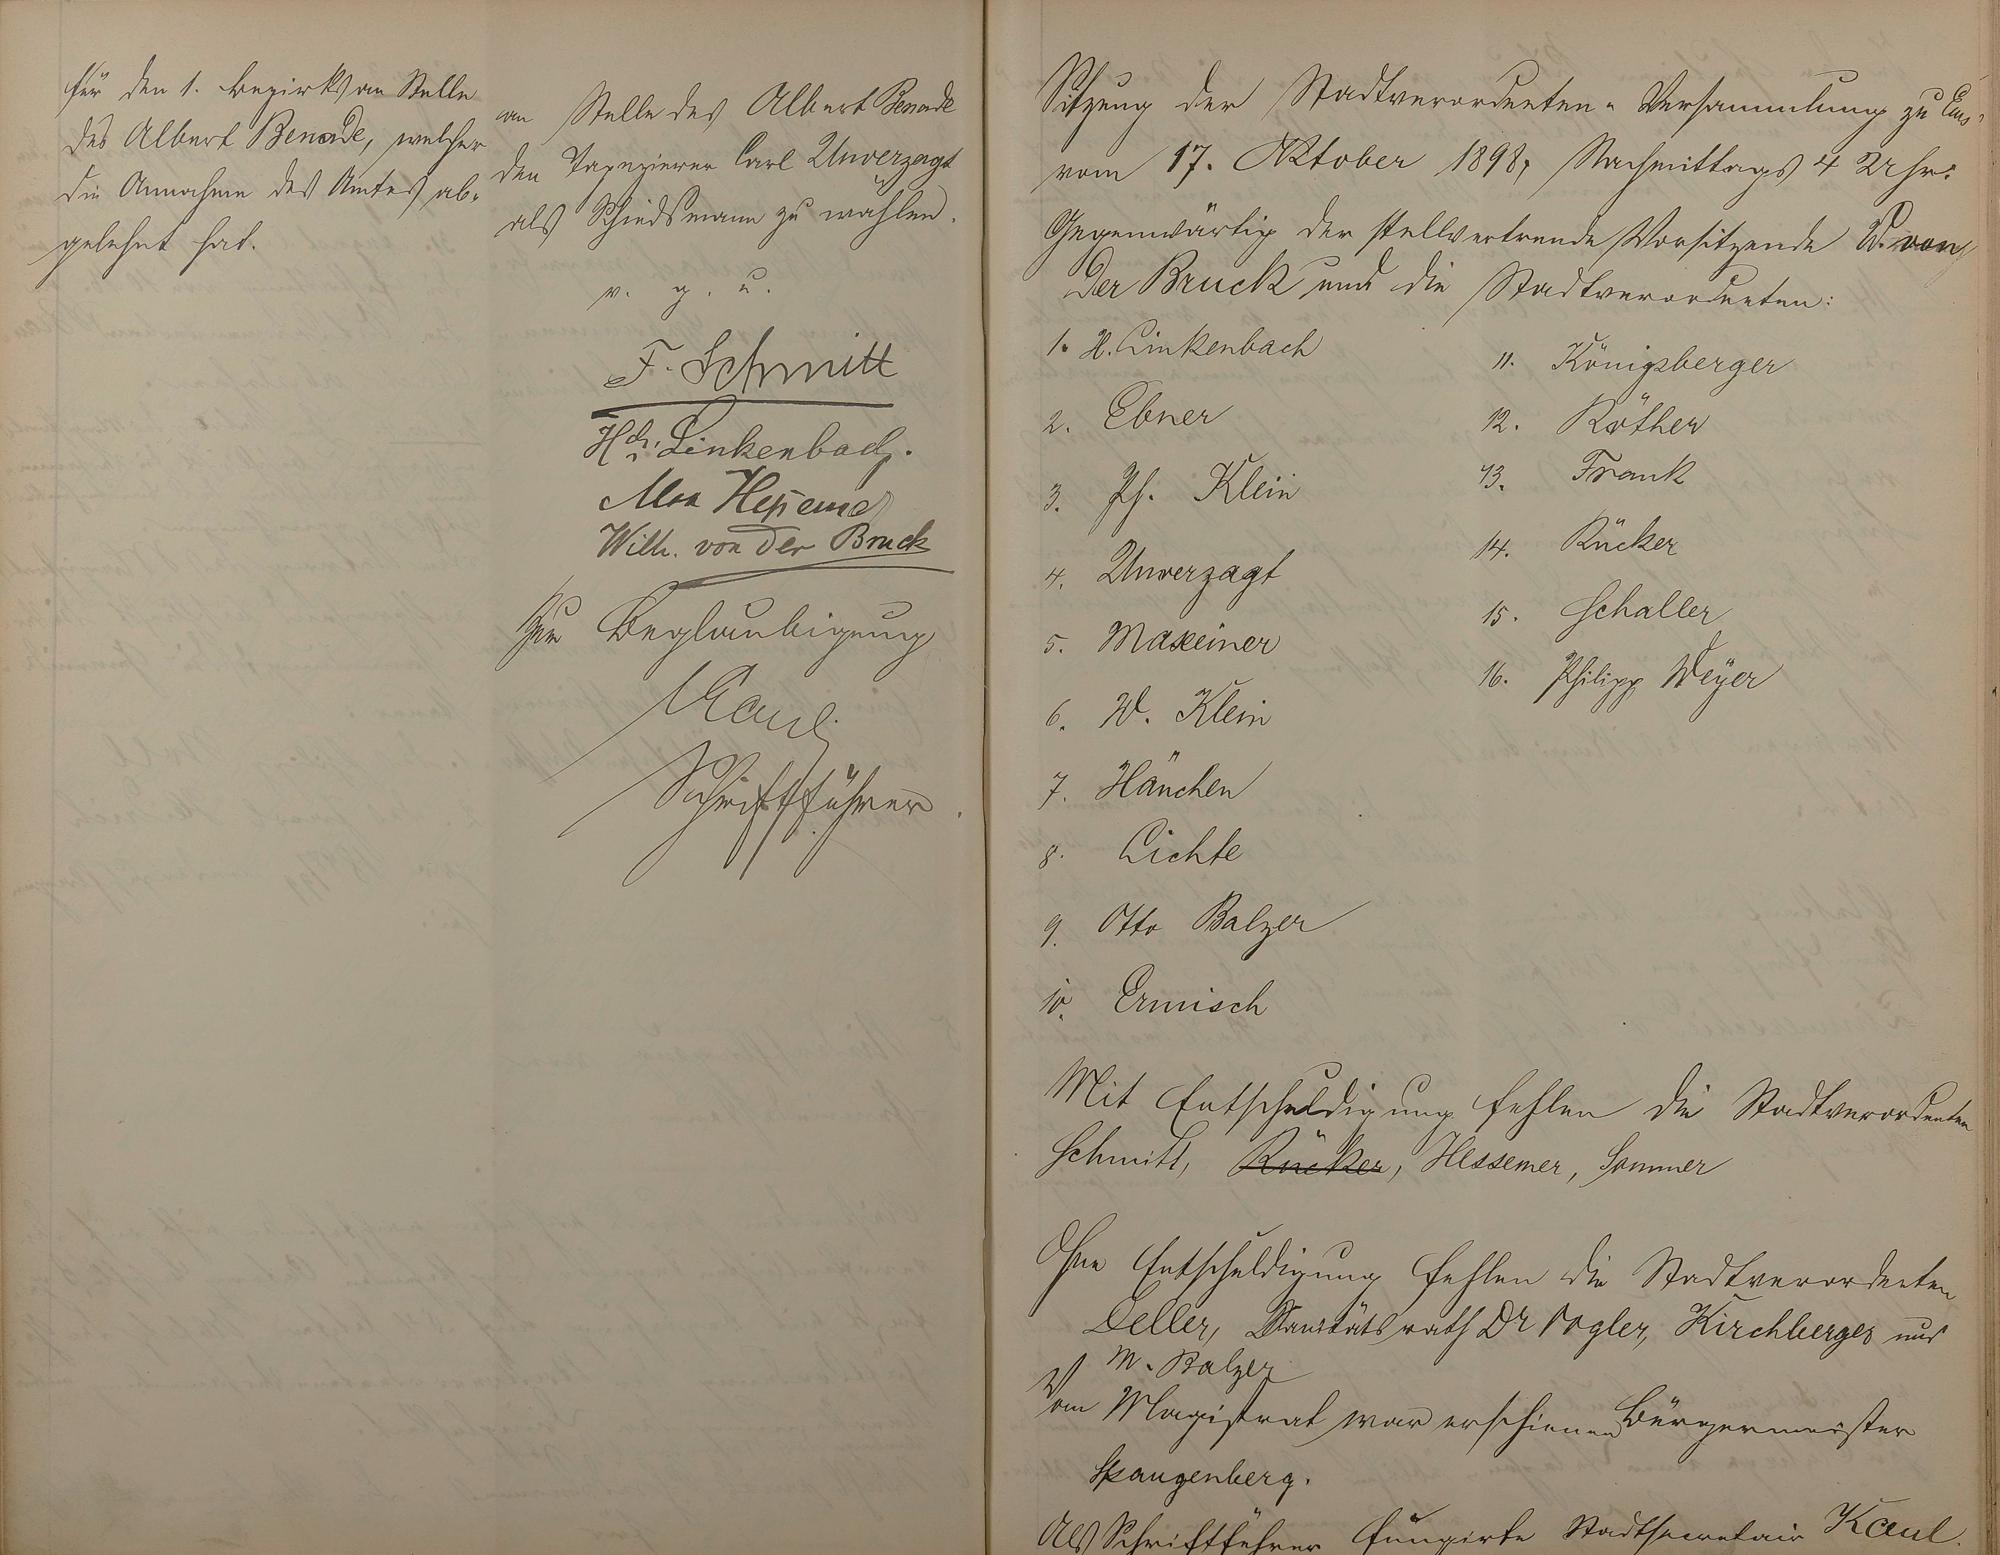 für den 1. Bezirk an Stelle
des Albert Benade, welcher
die Annahme des Amtes ab-
gelehnt hat.
an Stelle des Albert Benade
den Tapezierer Carl Unverzagt
als Schiedsmann zu wählen.
v. g. u.
F. Schmitt
Hch. Linkenbach.
Max Hessemer
Wilh. von der Bruck
Zur Beglaubigung
Kaul.
Schriftführer.
Sitzung der Stadtverordneten-Versammlung zu Ems,
vom 17. Oktober 1898, Nachmittags 4 Uhr.
Gegenwärtig der stellvertrende Vorsitzende W. von
der Bruck und die Stadtverordneten:
1. H. Linkenbach
2. Ebner
3. Ph. Klein
4. Unverzagt
5. Maxeiner
6. W. Klein
7. Hänchen
8. Lichte
9. Otto Balzer
10. Ermisch
11. Königsberger
12. Röther
13. Frank
14. Rücker
15. Schaller
16. Philipp Weyer
Mit Entschuldigung fehlen die Stadtverordneten
Schmitt, Rücker, Hessemer, Sommer
Ohne Entschuldigung fehlen die Stadtverordneten
Deller, Sanitätsrath Dr Vogler, Kirchberger und
M. Balzer
Vom Magistrat war erschienen Bürgermeister
Spangenberg.
Als Schriftführer fungirte Stadtsecretair Kaul.